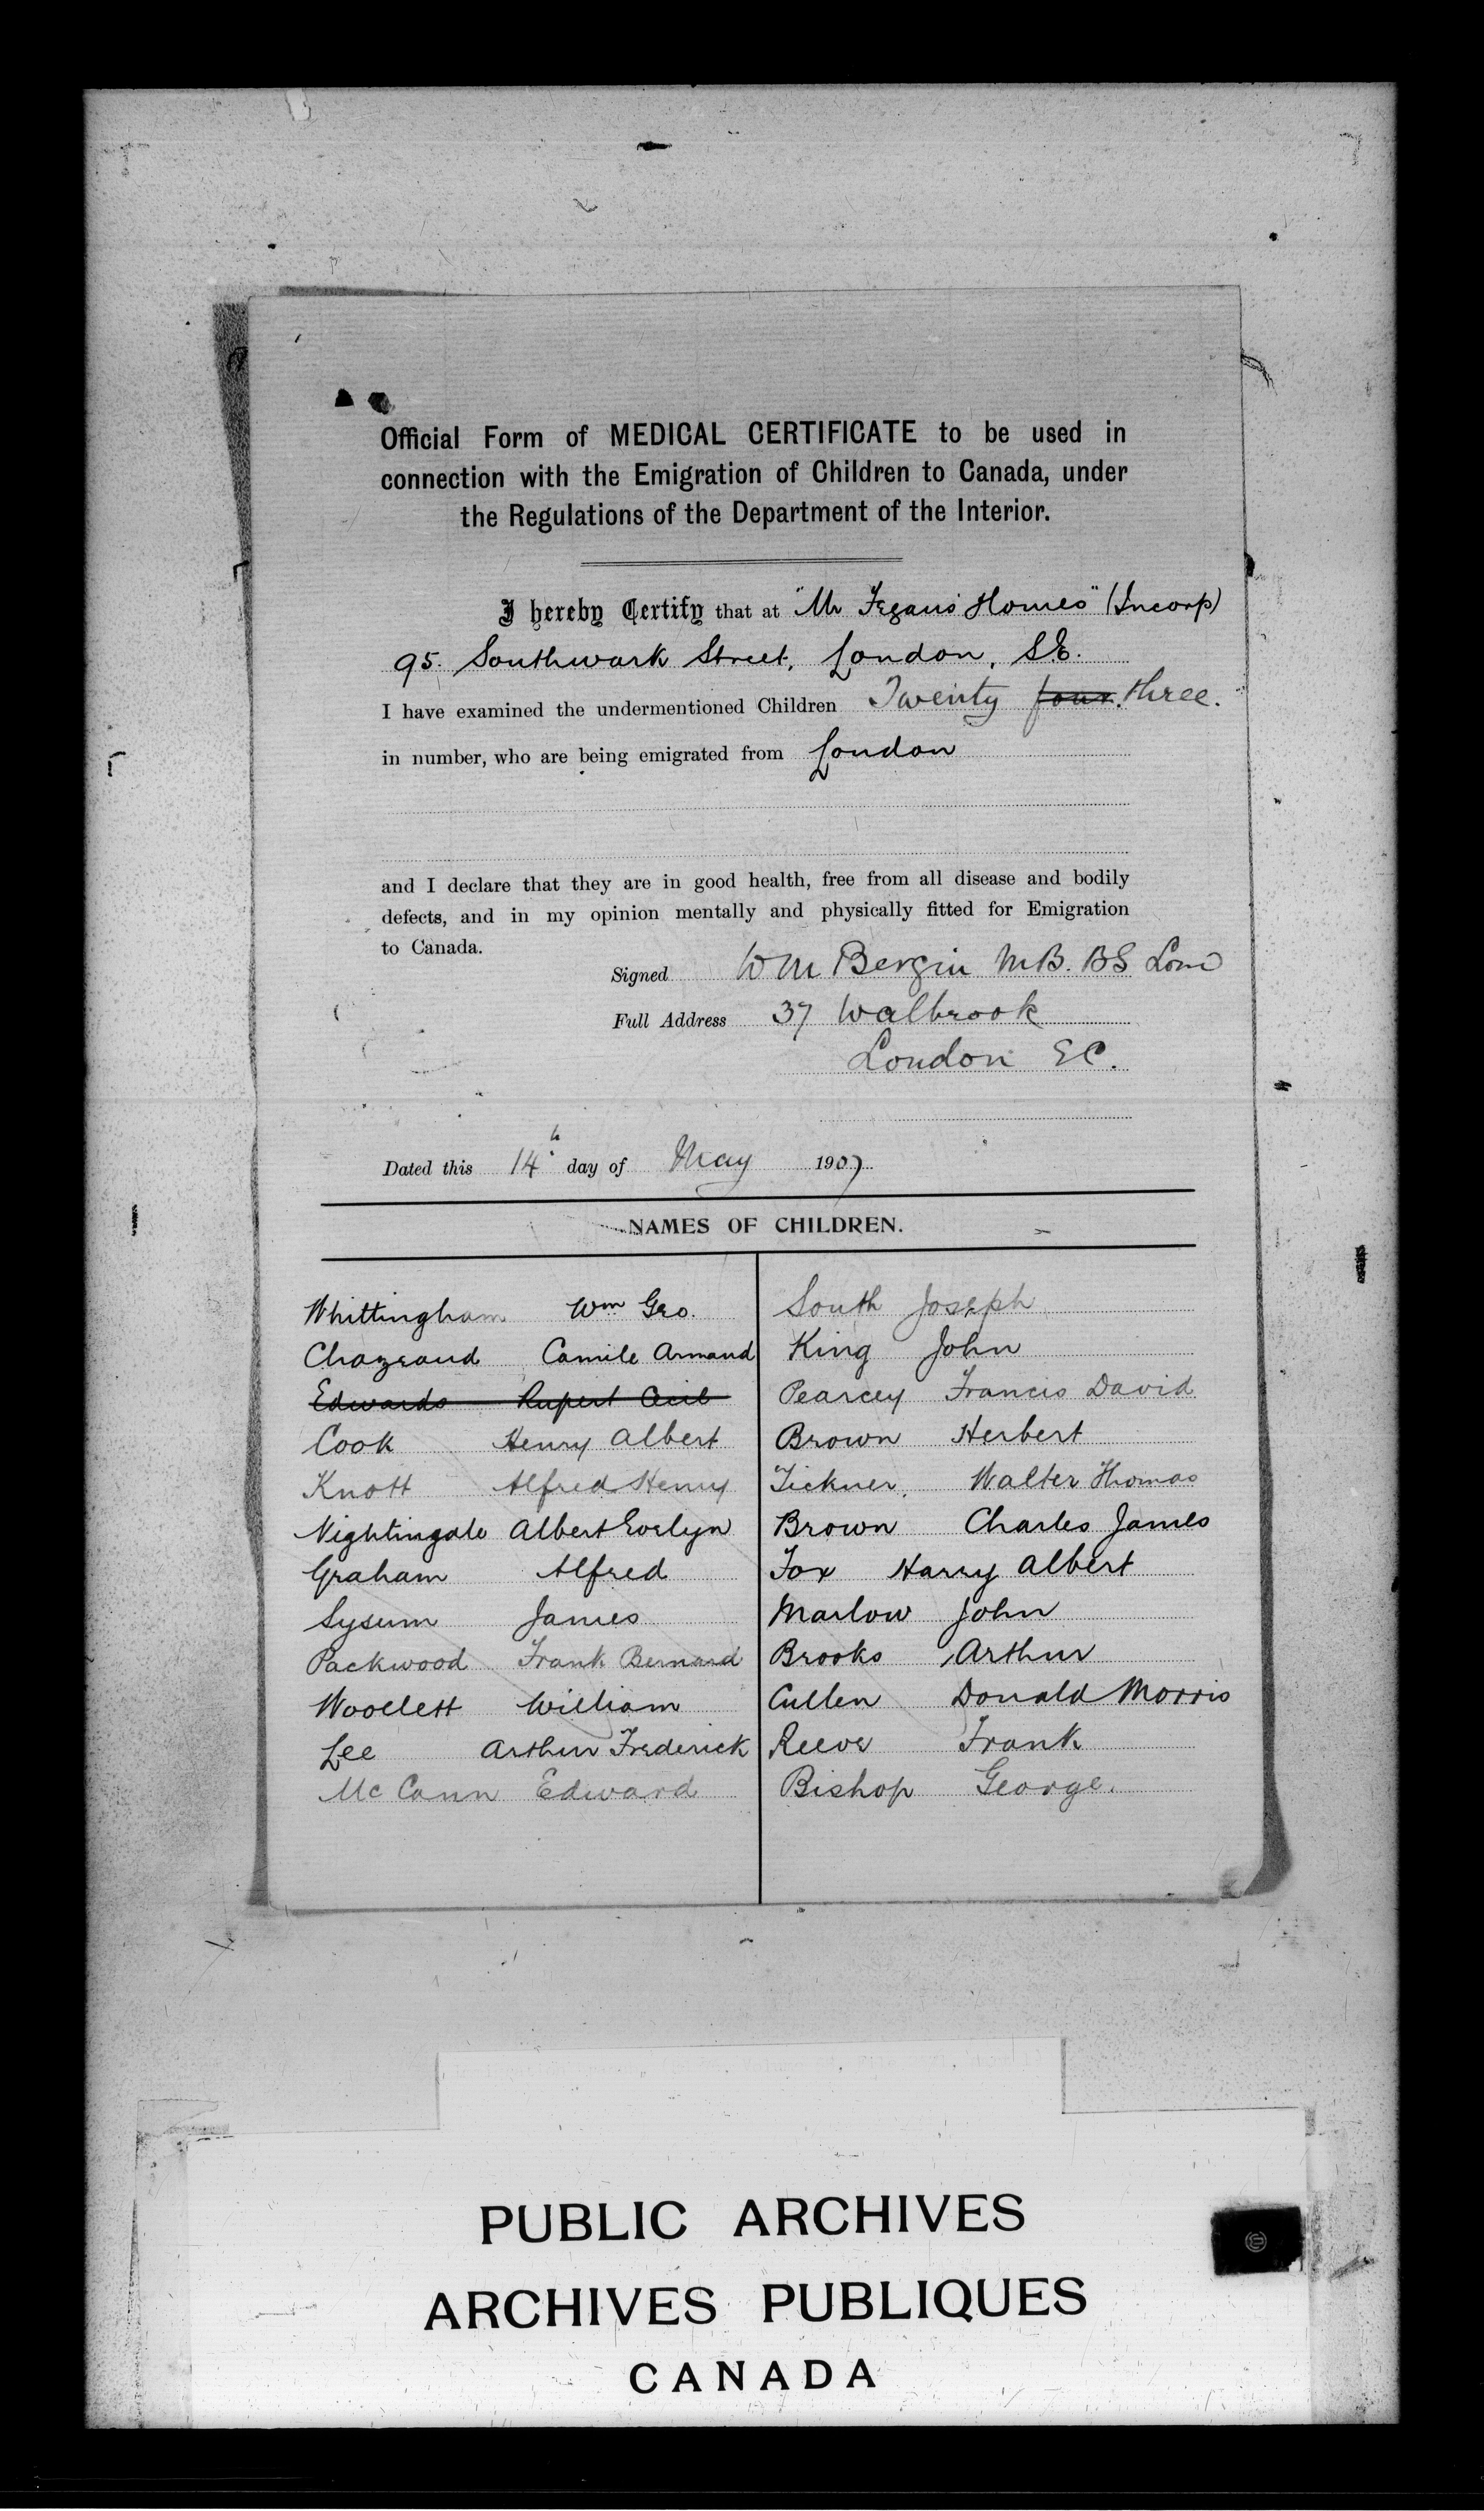 Official Form of MEDICAL CERTIFICATE to be used in
connection with the Emigration of Children to Canada, under
the Regulations of the Department of the Interior.
I hereby Certify that at "Mr Fegans Homes" (Incorp)
95. Southwark Street, London, S.E.
I have examined the undermentioned Children Twenty four. three.
in number, who are being emigrated from London
and I declare that they are in good health, free from all disease and bodily
defects, and in my opinion mentally and physically fitted for Emigration
to Canada.
Signed W M Bergin M.B. B.S Lond
Full Address 37 Walbrook
London E.C.
Dated this 14th day of May 1907
NAMES OF CHILDREN.
Whittingham Wm Geo.
Chazeaud Camile Armand
Edwards Rupert Cecil
Cook Henry Albert
Knott Alfred Henry
Nightingale Albert Evelyn
Graham Alfred
Sysum James
Packwood Frank Bernard
Woollett William
Lee Arthur Frederick
McCann Edward
South Joseph
King John
Pearcey Francis David
Brown Herbert
Tickner, Walter Thomas
Brown Charles James
Fox Harry Albert
Marlow John
Brooks Arthur
Cullen Donald Morris
Reeve Frank
Bishop George.
PUBLIC ARCHIVES
ARCHIVES PUBLIQUES
CANADA